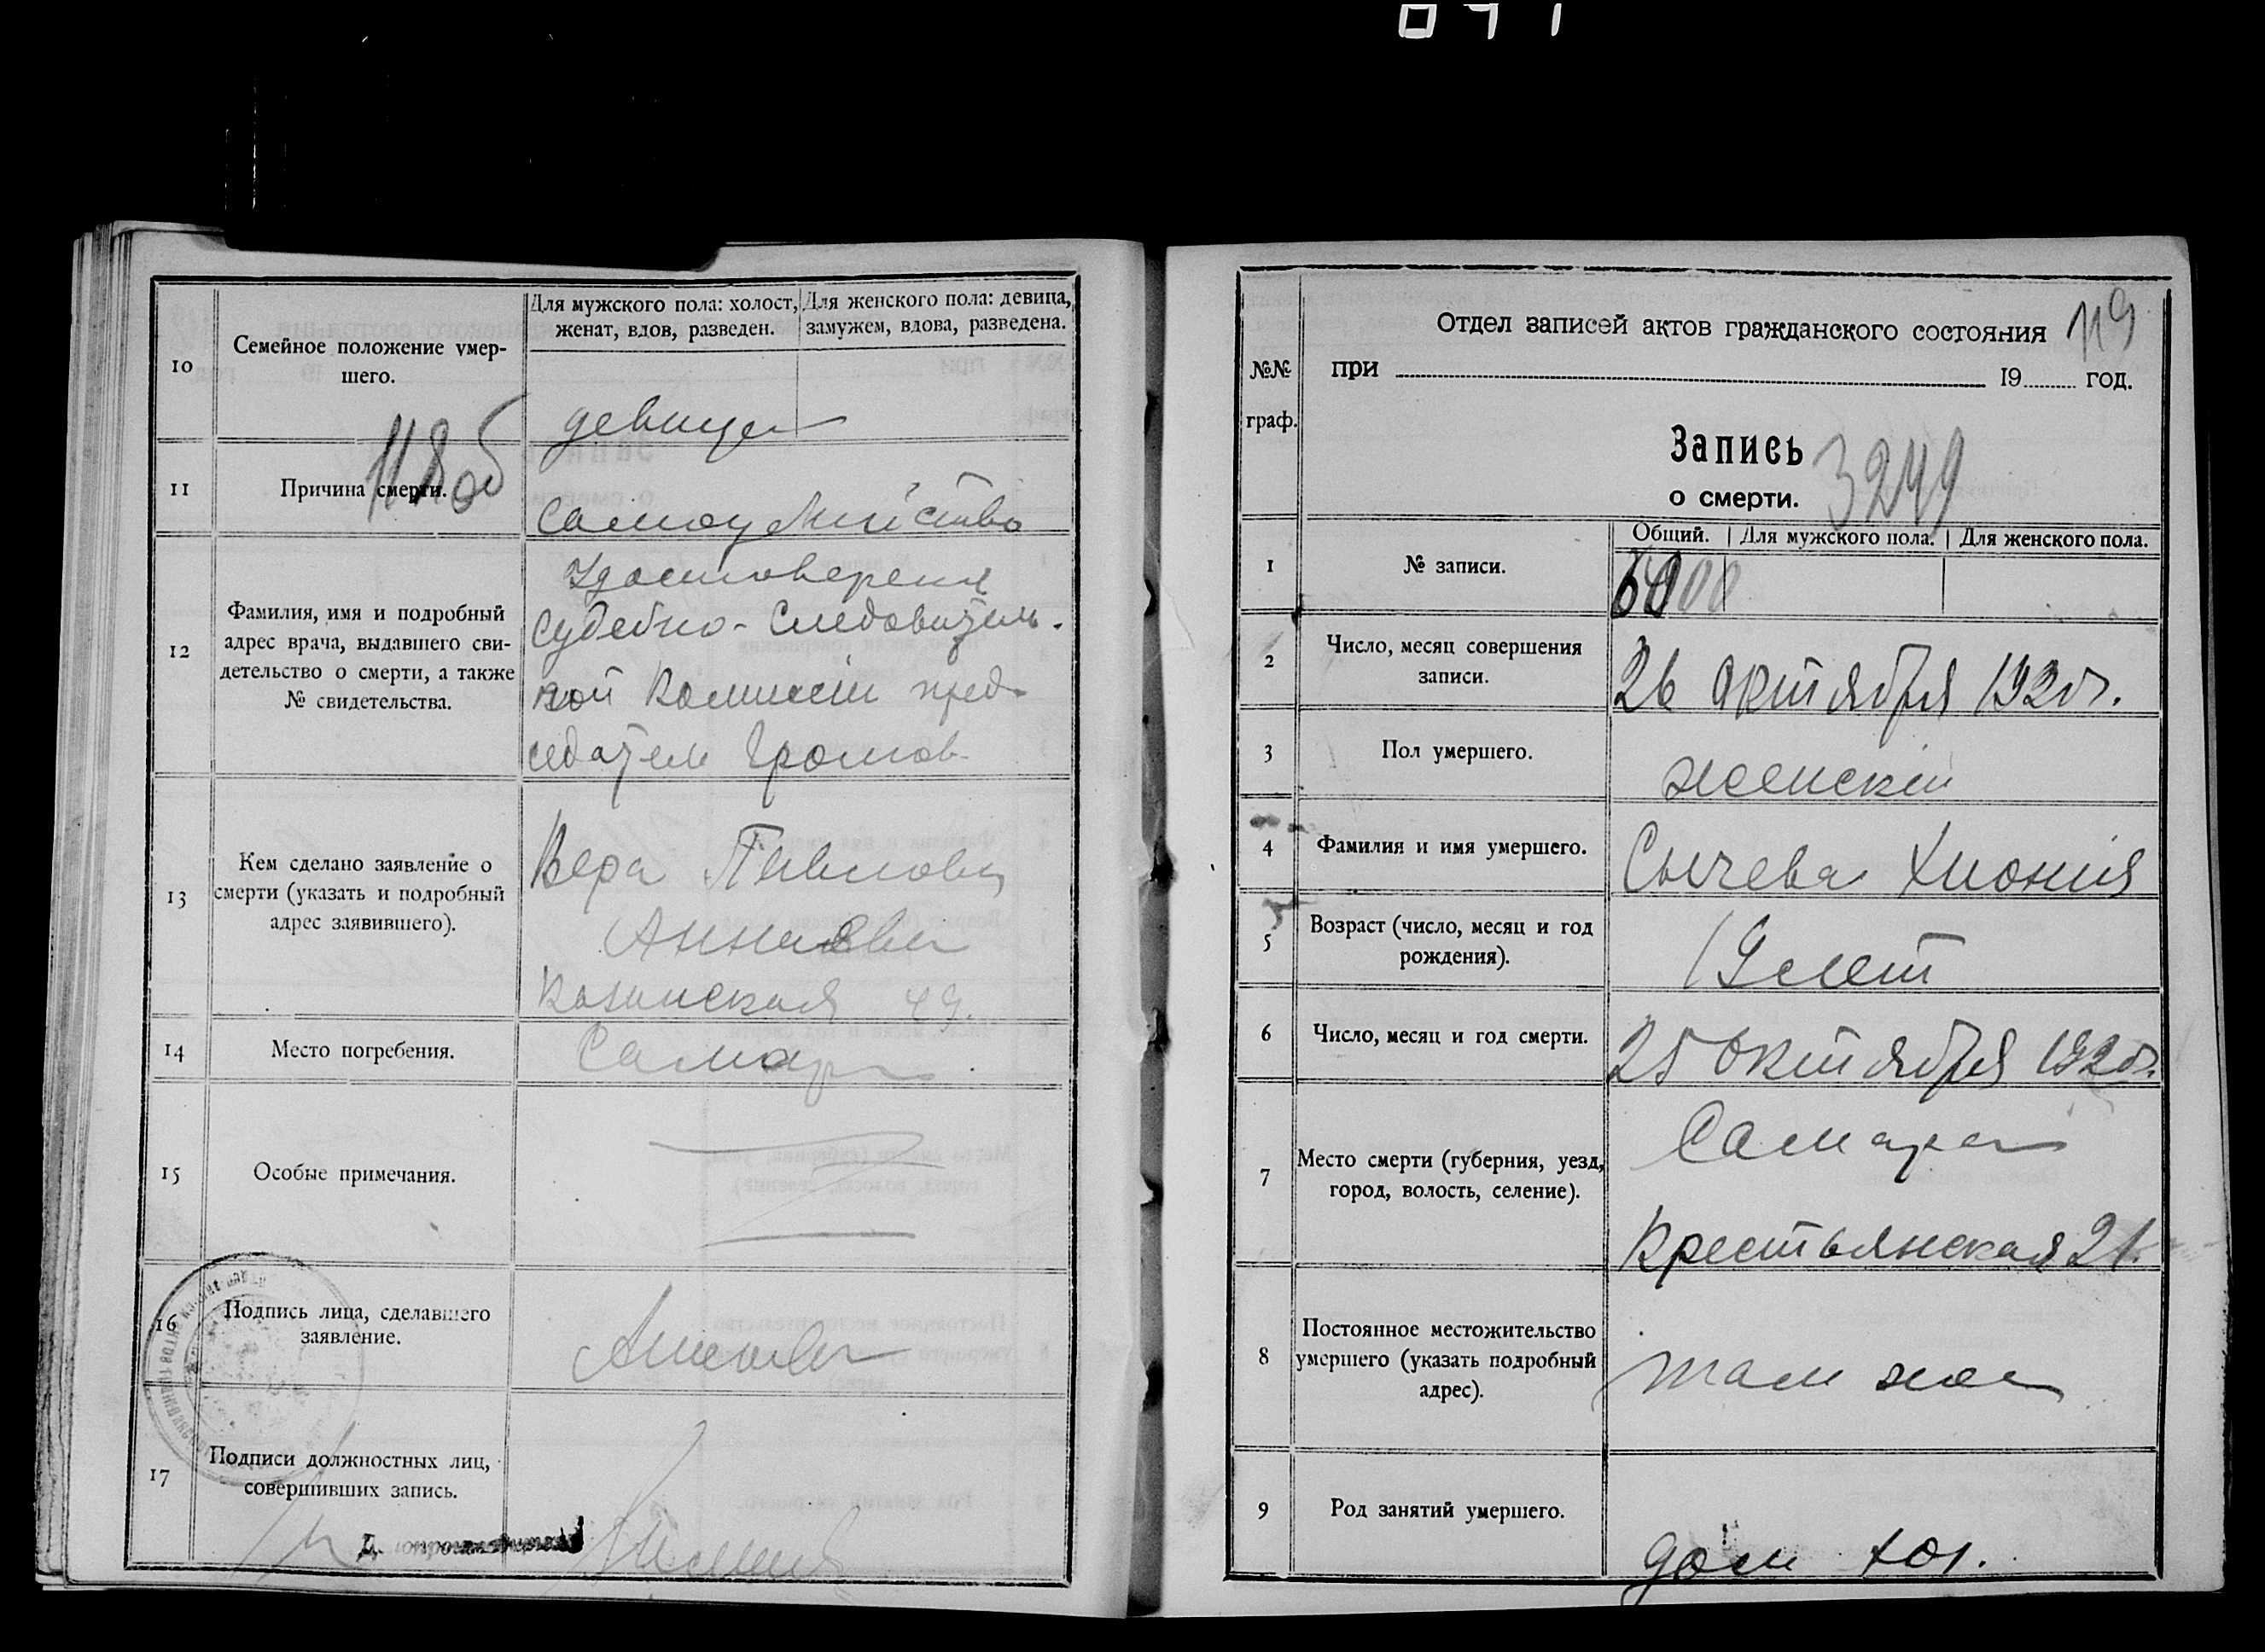 Для мужского пола: холост, женат, вдов, разведен.
Для женского пола: девица, замужем, вдова, разведена.
10
Семейное положение умер-
шего.
девица
118об
11
Причина смерти.
Самоубийство
12
Фамилия, имя и подробный
адрес врача, выдавшего сви-
детельство о смерти, а также
№ свидетельства.
Удостоверение
Судебно-Следователь.
ной Комиссіи пред-
седатель Громов
13
Кем сделано заявление о
смерти (указать и подробный
адрес заявившего).
Вера Павловна
Аннаева
Казанская 49.
14
Место погребения.
Самара
15
Особые примечания.
16
Подпись лица, сделавшего
заявление.
17
Подписи должностных лиц,
совершивших запись.
119
№№
граф.
Отдел записей актов гражданского состояния
при 19 год.
Запись
о смерти.
3249
Общий. Для мужского пола. Для женского пола.
1
№ записи.
2
Число, месяц совершения
записи.
26 октября 1920г.
3
Пол умершего.
женскій
4
Фамилия и имя умершего.
Сычева Хионія
5
Возраст (число, месяц и год
рождения).
19 лет
6
Число, месяц и год смерти.
25 октября 1920г.
7
Место смерти (губерния, уезд,
город, волость, селение).
Самара
Крестьянская 21.
8
Постоянное местожительство
умершего (указать подробный
адрес).
там же
9
Род занятий умершего.
дом хоз.